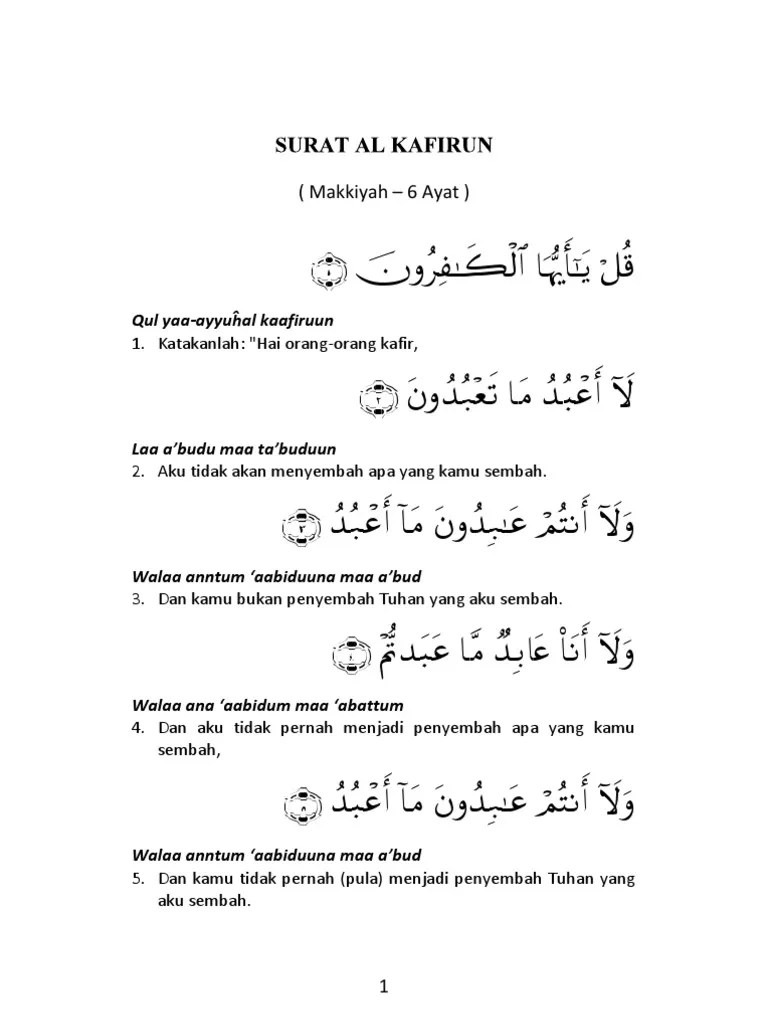 SURAT AL KAFIRUN
( Makkiyah – 6 Ayat )
قُلْ يَـٰٓأَيُّهَا ٱلْكَـٰفِرُونَ ﴿١﴾
Qul yaa-ayyuĥal kaafiruun
1. Katakanlah: "Hai orang-orang kafir,
لَآ أَعْبُدُ مَا تَعْبُدُونَ ﴿٢﴾
Laa a’budu maa ta’buduun
2. Aku tidak akan menyembah apa yang kamu sembah.
وَلَآ أَنتُمْ عَـٰبِدُونَ مَآ أَعْبُدُ ﴿٣﴾
Walaa anntum ‘aabiduuna maa a’bud
3. Dan kamu bukan penyembah Tuhan yang aku sembah.
وَلَآ أَنَا۠ عَابِدٌ مَّا عَبَدتُّمْ ﴿٤﴾
Walaa ana ‘aabidum maa ‘abattum
4. Dan aku tidak pernah menjadi penyembah apa yang kamu
sembah,
وَلَآ أَنتُمْ عَـٰبِدُونَ مَآ أَعْبُدُ ﴿٥﴾
Walaa anntum ‘aabiduuna maa a’bud
5. Dan kamu tidak pernah (pula) menjadi penyembah Tuhan yang
aku sembah.
1